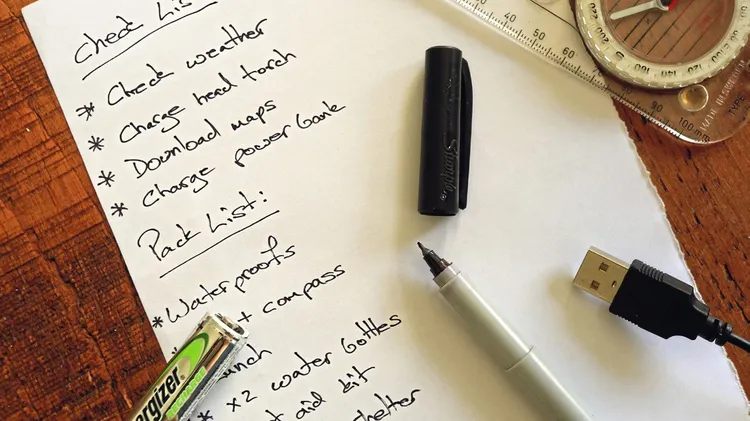 Check Lis
* Check weather
* Charge head torch
* Download maps
* Charge power bank
Pack List:
* Waterproofs
* + compass
unch
* x2 water bottles
* t aid kit
helter
ergizer
Sharpie
40 50 60 70 80 90 100